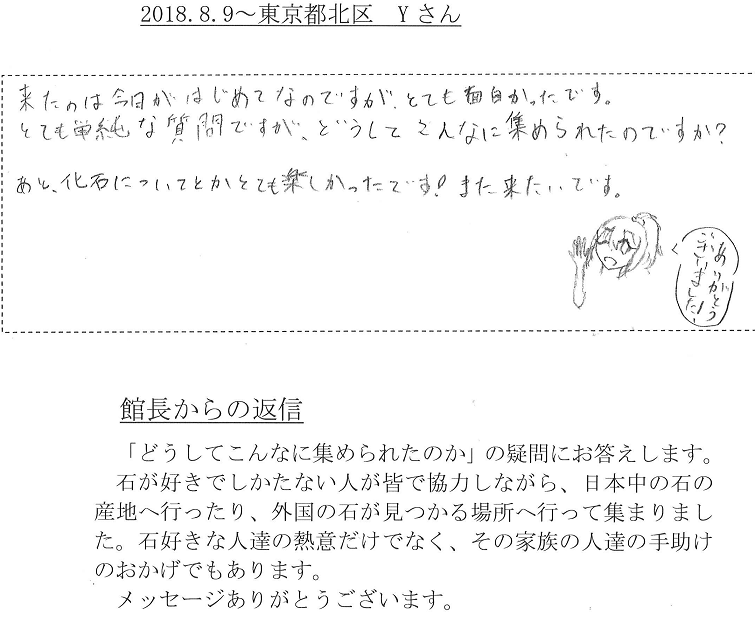 2018.8.9～東京都北区　Yさん
来たのは今日がはじめてなのですが、とても面白かったです。
とても単純な質問ですが、どうしてこんなに集められたのですか?
あと、化石についてとかとても楽しかったです! また来たいです。
ありがとう
ございました!
館長からの返信
「どうしてこんなに集められたのか」の疑問にお答えします。
石が好きでしかたない人が皆で協力しながら、日本中の石の
産地へ行ったり、外国の石が見つかる場所へ行って集まりまし
た。石好きな人達の熱意だけでなく、その家族の人達の手助け
のおかげでもあります。
メッセージありがとうございます。